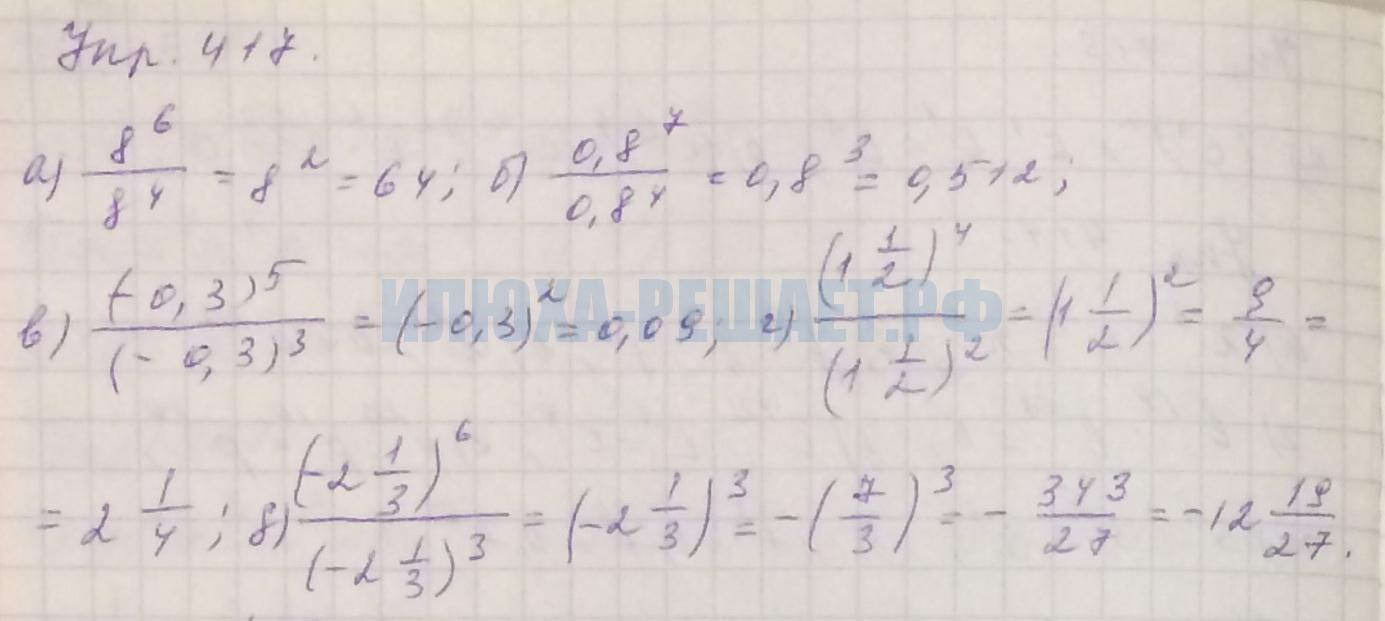 Упр. 417.
а) 8^6/8^4 = 8^2 = 64; б) 0,8^7/0,8^4 = 0,8^3 = 0,512;
в) (-0,3)^5/(-0,3)^3 = (-0,3)^2 = 0,09; г) (1 1/2)^4/(1 1/2)^2 = (1 1/2)^2 = 9/4 =
= 2 1/4; д) (-2 1/3)^6/(-2 1/3)^3 = (-2 1/3)^3 = -(7/3)^3 = - 343/27 = -12 19/27.
ИЛЮХА-РЕШАЕТ.РФ